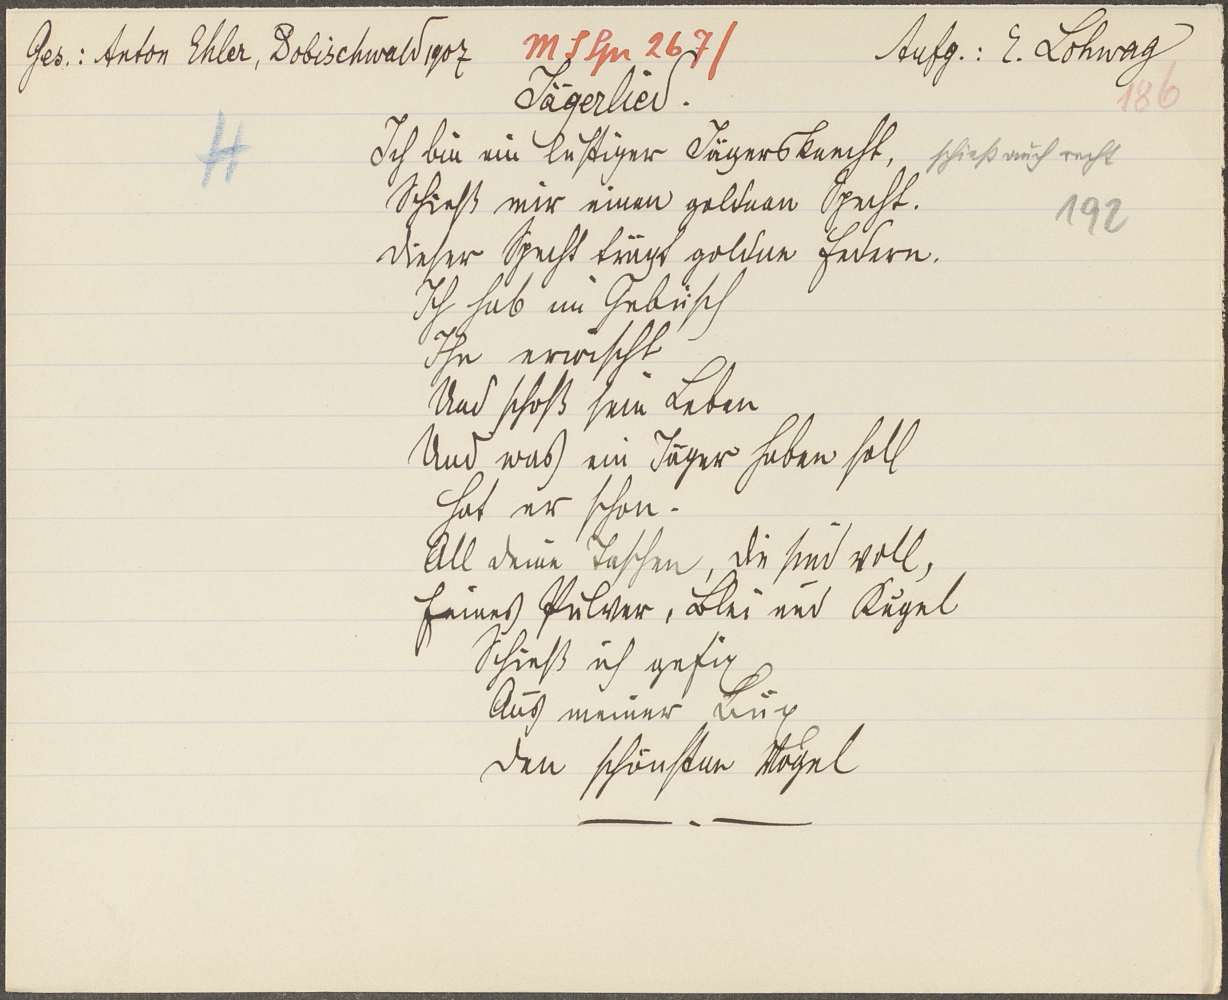 Ges.: Anton Ehler, Dobischwald 1907 267/ Aufg.: E. Lohwag
Jägerlied. 186
H Ich bin ein lustiger Jägersknecht, schieß auch recht
Schieß mir einen goldnen Specht. 192
Dieser Specht trägt goldne Federn.
Ich hab im Gebüsch
Ihn erwischt
Und schoß sein Leben
Und was ein Jäger haben soll
Hat er schon.
All deine Taschen, die sind voll,
Feines Pulver, Blei und Kugel
Schieß ich gefix
Aus meiner Bux
Den schönsten Vogel